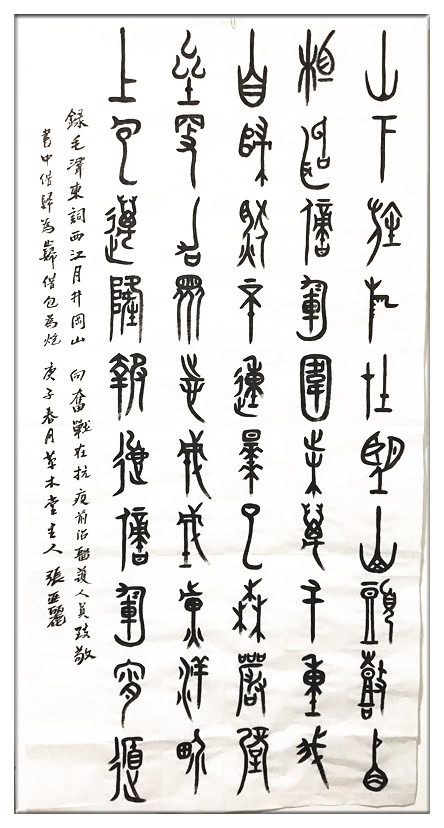 山下旌旗在望山頭鼓角
相聞敵軍圍困萬千重我
自歸然不動早已森嚴壁
壘更加眾志成城黃洋界
上包聲隆報道敵軍宵遁
錄毛澤東詞西江月井岡山 向奮戰在抗疫前沿醫護人員致敬
書中借歸為巋借包為炮 庚子春月草木堂主人 張亞麗